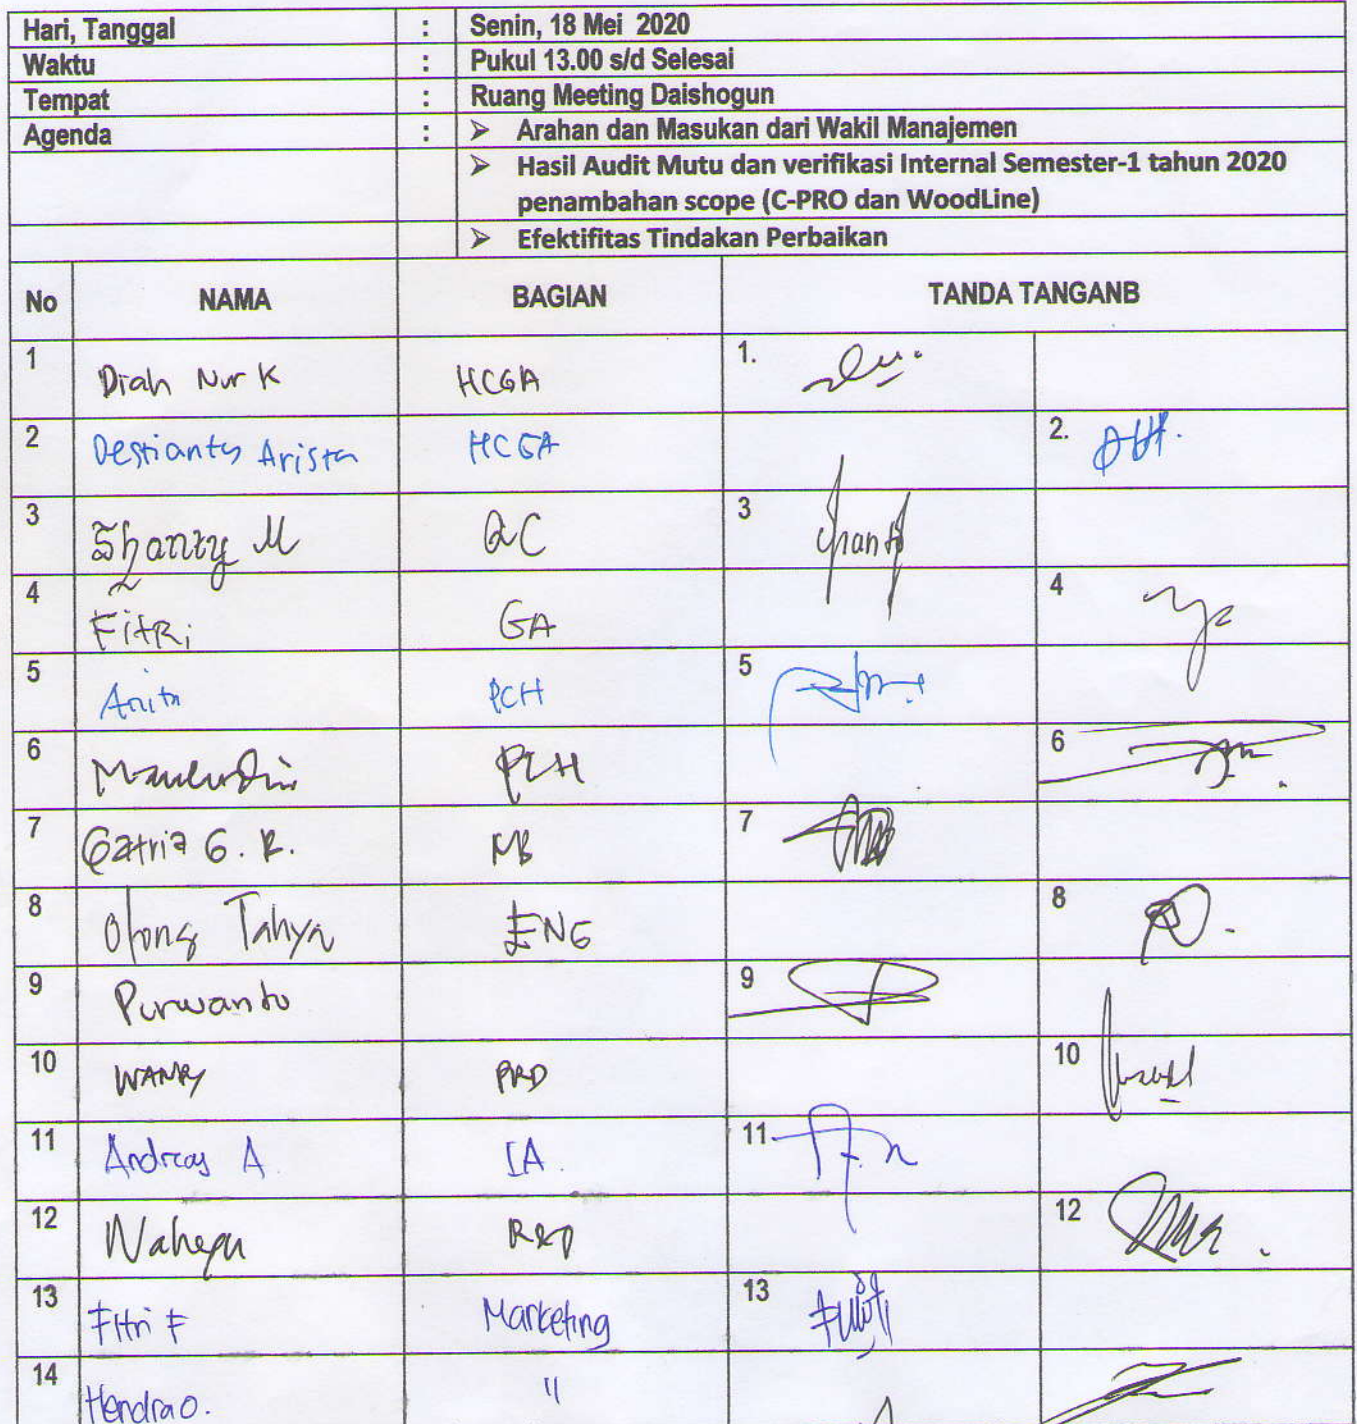 Hari, Tanggal : Senin, 18 Mei 2020
Waktu : Pukul 13.00 s/d Selesai
Tempat : Ruang Meeting Daishogun
Agenda : ➢ Arahan dan Masukan dari Wakil Manajemen
➢ Hasil Audit Mutu dan verifikasi Internal Semester-1 tahun 2020
penambahan scope (C-PRO dan WoodLine)
➢ Efektifitas Tindakan Perbaikan
No NAMA BAGIAN TANDA TANGANB
1 Diah Nur K HCGA 1.
2 Destianty Arista HCGA 2.
3 Shanty M QC 3
4 Fitri GA 4
5 Anita PCH 5
6 PCH 6
7 Gatria G. R. 7
8 Tahya ENG 8
9 Purwanto 9
10 PRD 10
11 Andreas A IA. 11
12 Wahyu R&D 12
13 Fitri F Marketing 13
14 Hendra O. "